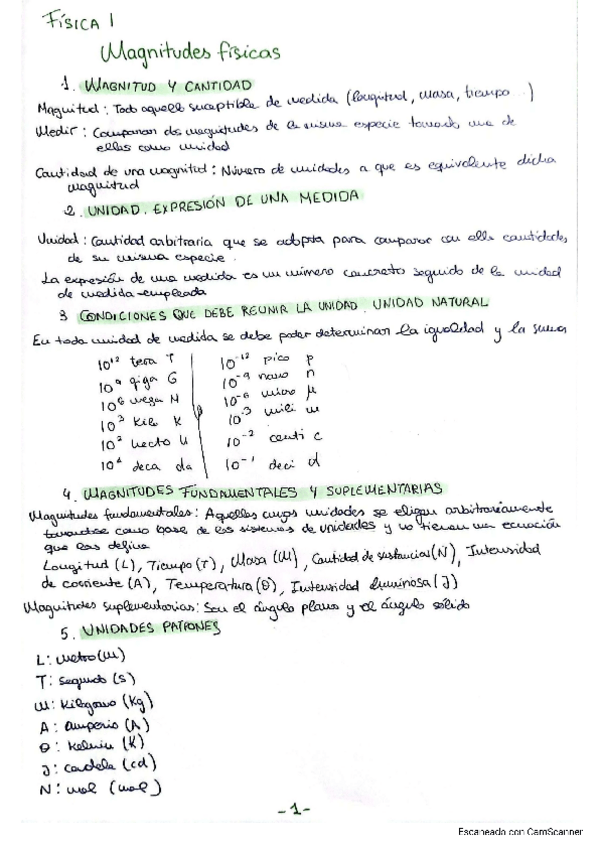 FÍSICA I
Magnitudes físicas
1. MAGNITUD Y CANTIDAD
Magnitud: Todo aquello susceptible de medida (longitud, masa, tiempo...)
Medir: Comparar dos magnitudes de la misma especie tomando una de
ellas como unidad
Cantidad de una magnitud: Número de unidades a que es equivalente dicha
magnitud
2. UNIDAD. EXPRESIÓN DE UNA MEDIDA
Unidad: Cantidad arbitraria que se adopta para comparar con ella cantidades
de su misma especie.
La expresión de una medida es un número concreto seguido de la unidad
de medida empleada
3 CONDICIONES QUE DEBE REUNIR LA UNIDAD. UNIDAD NATURAL
En toda unidad de medida se debe poder determinar la igualdad y la suma
10¹² tera T 10⁻¹² pico p
10⁹ giga G 10⁻⁹ nano n
10⁶ mega M 10⁻⁶ micro μ
10³ kilo k 10⁻³ mili m
10² hecto h 10⁻² centi c
10¹ deca da 10⁻¹ deci d
4. MAGNITUDES FUNDAMENTALES Y SUPLEMENTARIAS
Magnitudes fundamentales: Aquellas cuyas unidades se eligen arbitrariamente
tomándose como base de los sistemas de unidades y no tienen una ecuación
que las define
Longitud (L), Tiempo (T), Masa (M), Cantidad de sustancia (N), Intensidad
de corriente (A), Temperatura (θ), Intensidad luminosa (J)
Magnitudes suplementarias: Son el ángulo plano y el ángulo sólido
5. UNIDADES PATRONES
L: metro (m)
T: segundo (s)
M: Kilogramo (Kg)
A: amperio (A)
θ: kelvin (K)
J: candela (cd)
N: mol (mol)
-1-
Escaneado con CamScanner